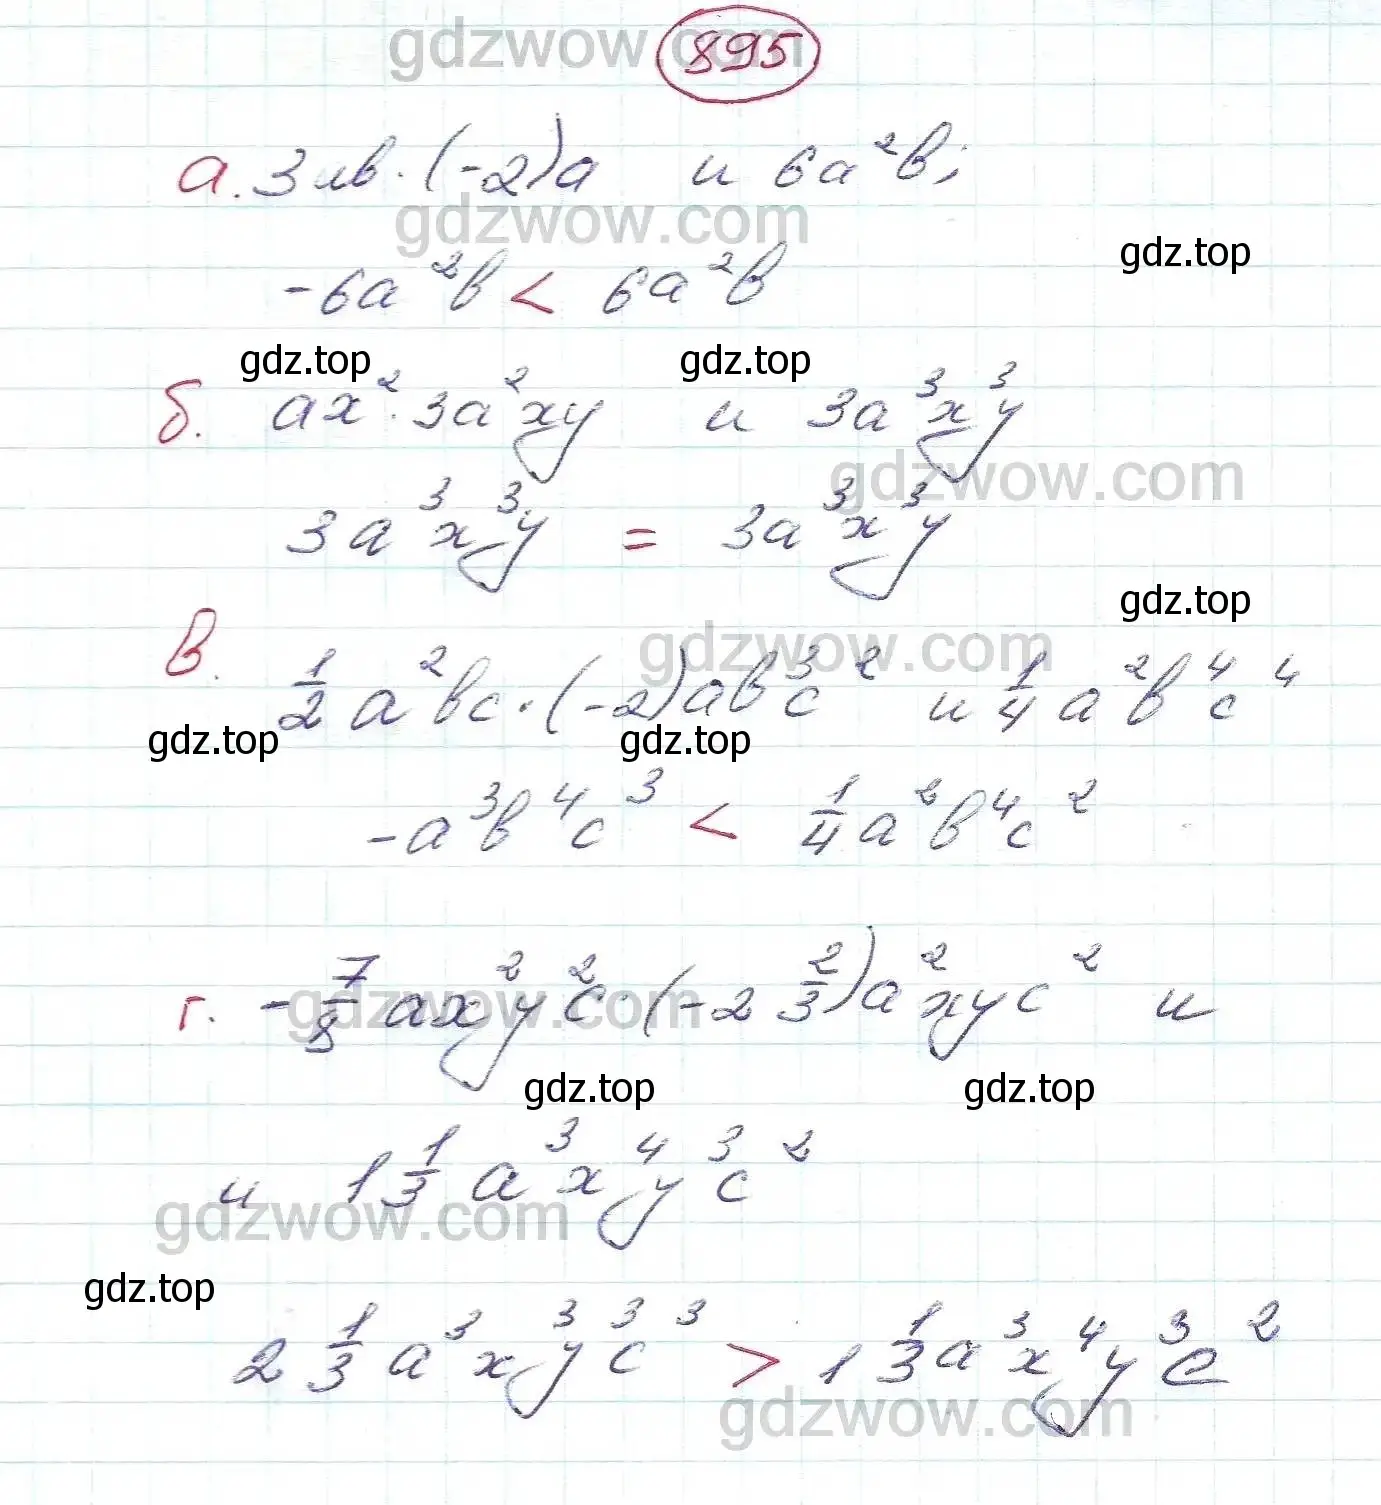 gdzwow.com
895
а. 3ав·(-2)а и 6а²в;
gdzwow.com
gdz.top
-6а²в < 6а²в
gdz.top gdz.top
б. ax²·3a²xy и 3a³x³y
gdzwow.com
3a³x³y = 3a³x³y
gdz.top
в.
gdzwow.com
1/2 a²вc·(-2)aв³c² и 1/4 a²в⁴c⁴
gdz.top gdz.top
-a³в⁴c³ < 1/4 a²в⁴c²
г. -7/8 ax²y²c·(-2 2/3)a²xyc² и
gdzwow.com
gdz.top gdz.top
и 1 1/3 a³x⁴y³c²
gdzwow.com
gdz.top
2 1/3 a³x³y³c³ > 1 1/3 a³x⁴y³c²
gdzwow.com